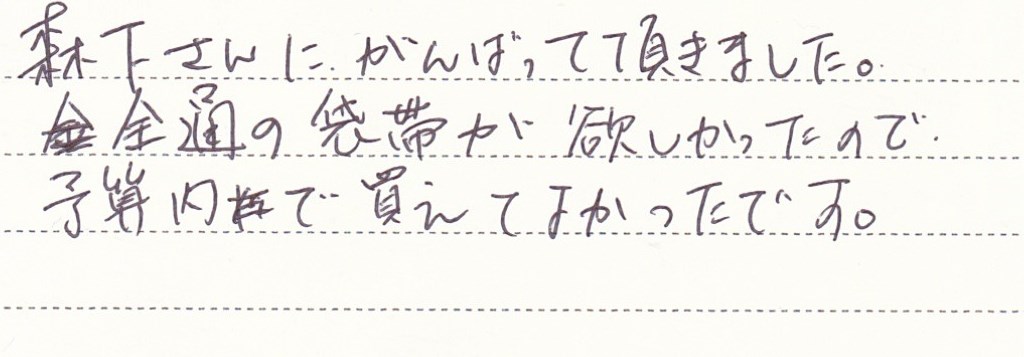 森下さんに、がんばって頂きました。
全通の袋帯が欲しかったので
予算内で買えてよかったです。